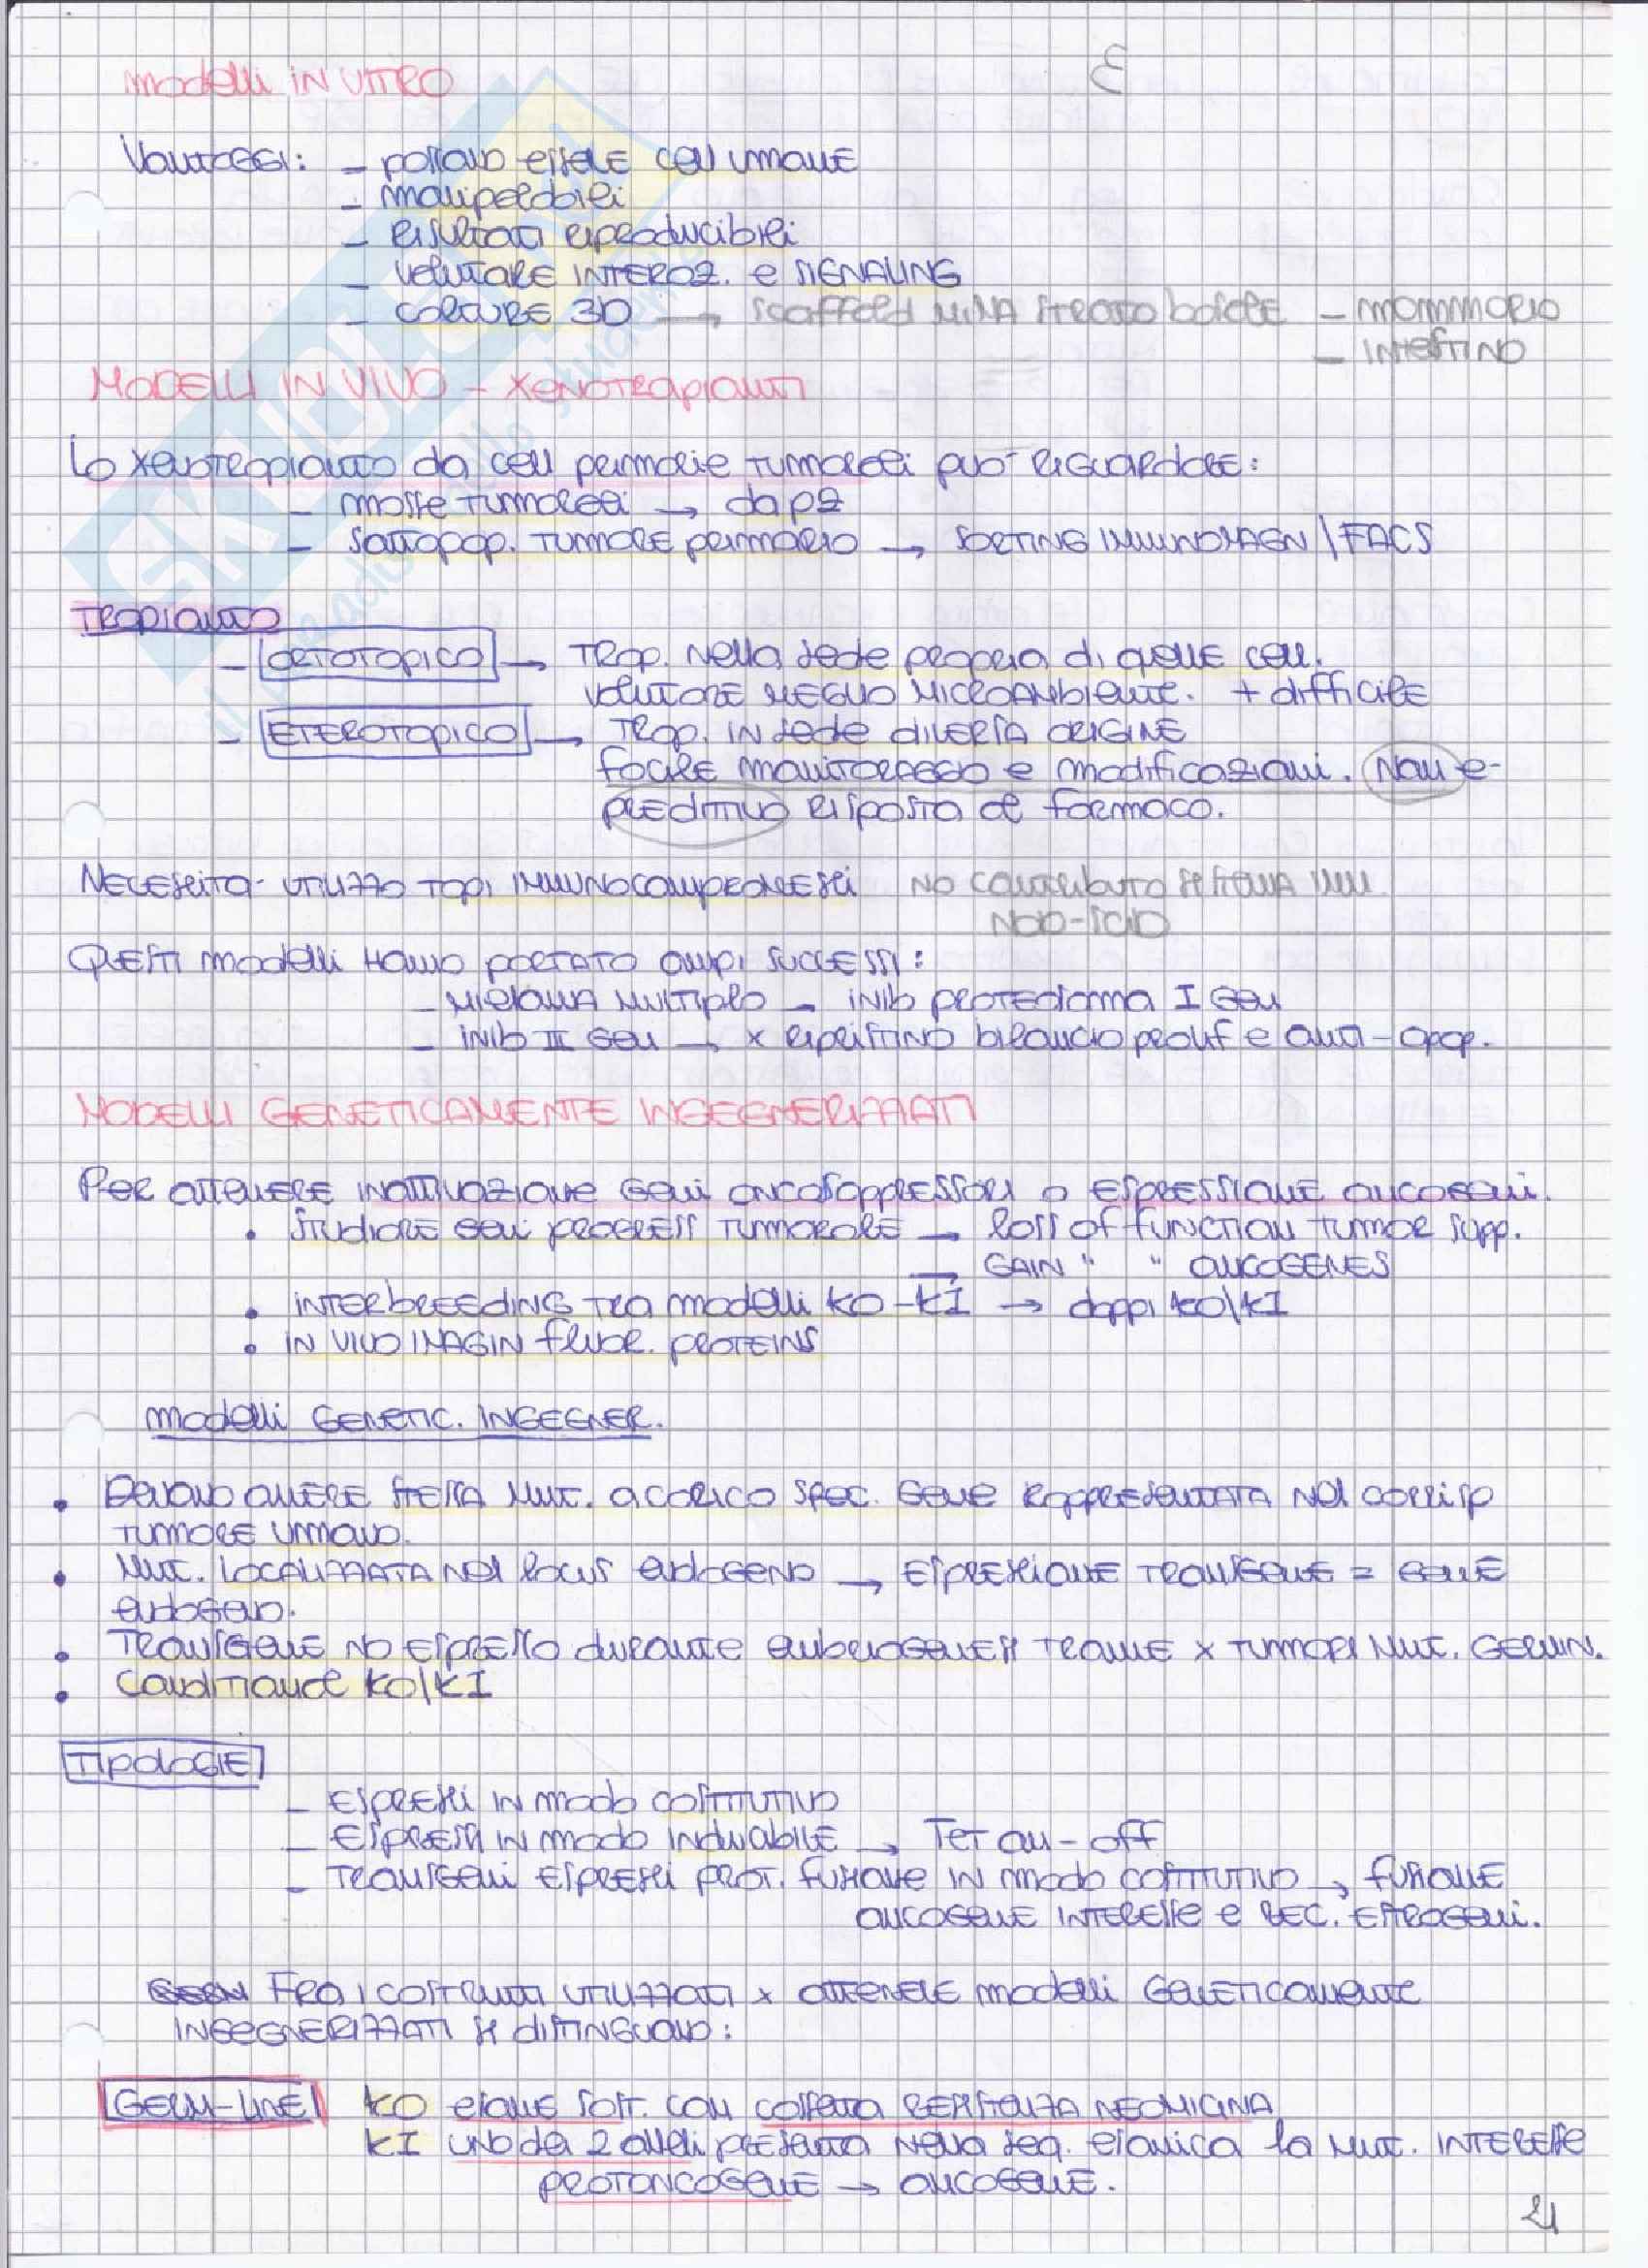 Modelli IN VITRO
3
VANTAGGI: - possono essere cell umane
- manipolabili
- risultati riproducibili
- valutare INTERAZ. e SIGNALING
- colture 3D → scaffold MIMA strato basale - mammario
- INTESTINO
MODELLI IN VIVO - Xenotrapianti
Lo xenotrapianto da cell primarie tumorali può riguardare:
- masse tumorali → da pz
- sottopop. tumore primario → SORTING IMMUNOMAGN \ FACS
TRAPIANTO
- ORTOTOPICO → Trap. nella sede propria di quelle cell.
valutare meglio microambiente. + difficile
- ETEROTOPICO → Trap. in sede diversa origine
facile monitoraggio e modificazioni. Non è
predittivo risposta al farmaco.
Necessità utilizzo topi immunocompromessi NO contributo sistema imm
NOD-SCID
Questi modelli hanno portato ampi successi:
- mieloma multiplo → inib proteasoma I gen
- inib II gen → x ripristino bilancio prolif e anti-apop.
MODELLI GENETICAMENTE INGEGNERIZZATI
Per ottenere inattivazione geni oncosoppressori o espressione oncogeni.
• Studiare geni progress tumorale → loss of function tumor supp.
→ GAIN " " ONCOGENES
• INTERBREEDING tra modelli KO-KI → doppi KO\KI
• IN VIVO IMAGIN fluor. proteins
modelli GENETIC. INGEGNER.
• Devono avere stessa mut. a carico spec. gene rappresentata nel corrisp
tumore umano.
• Mut. localizzata nel locus endogeno → espressione transgene = gene
endogeno.
• Transgene no espresso durante embriogenesi tranne x tumori mut. germin.
• Conditional KO\KI
TIPOLOGIE
- espressi in modo costitutivo
- espressi in modo inducibile → Tet on-off
- transgeni espressi prot. fusione in modo costitutivo → fusione
oncogene interesse e rec. estrogeni.
Fra i costrutti utilizzati x ottenere modelli geneticamente
ingegnerizzati si distinguono:
GERM-LINE KO esone sost. con cassetta resistenza neomicina
KI uno dei 2 alleli presenta nella seq. esonica la mut. interesse
protoncogene → oncogene.
21
SKUOLA.NET
il paradiso dello studente